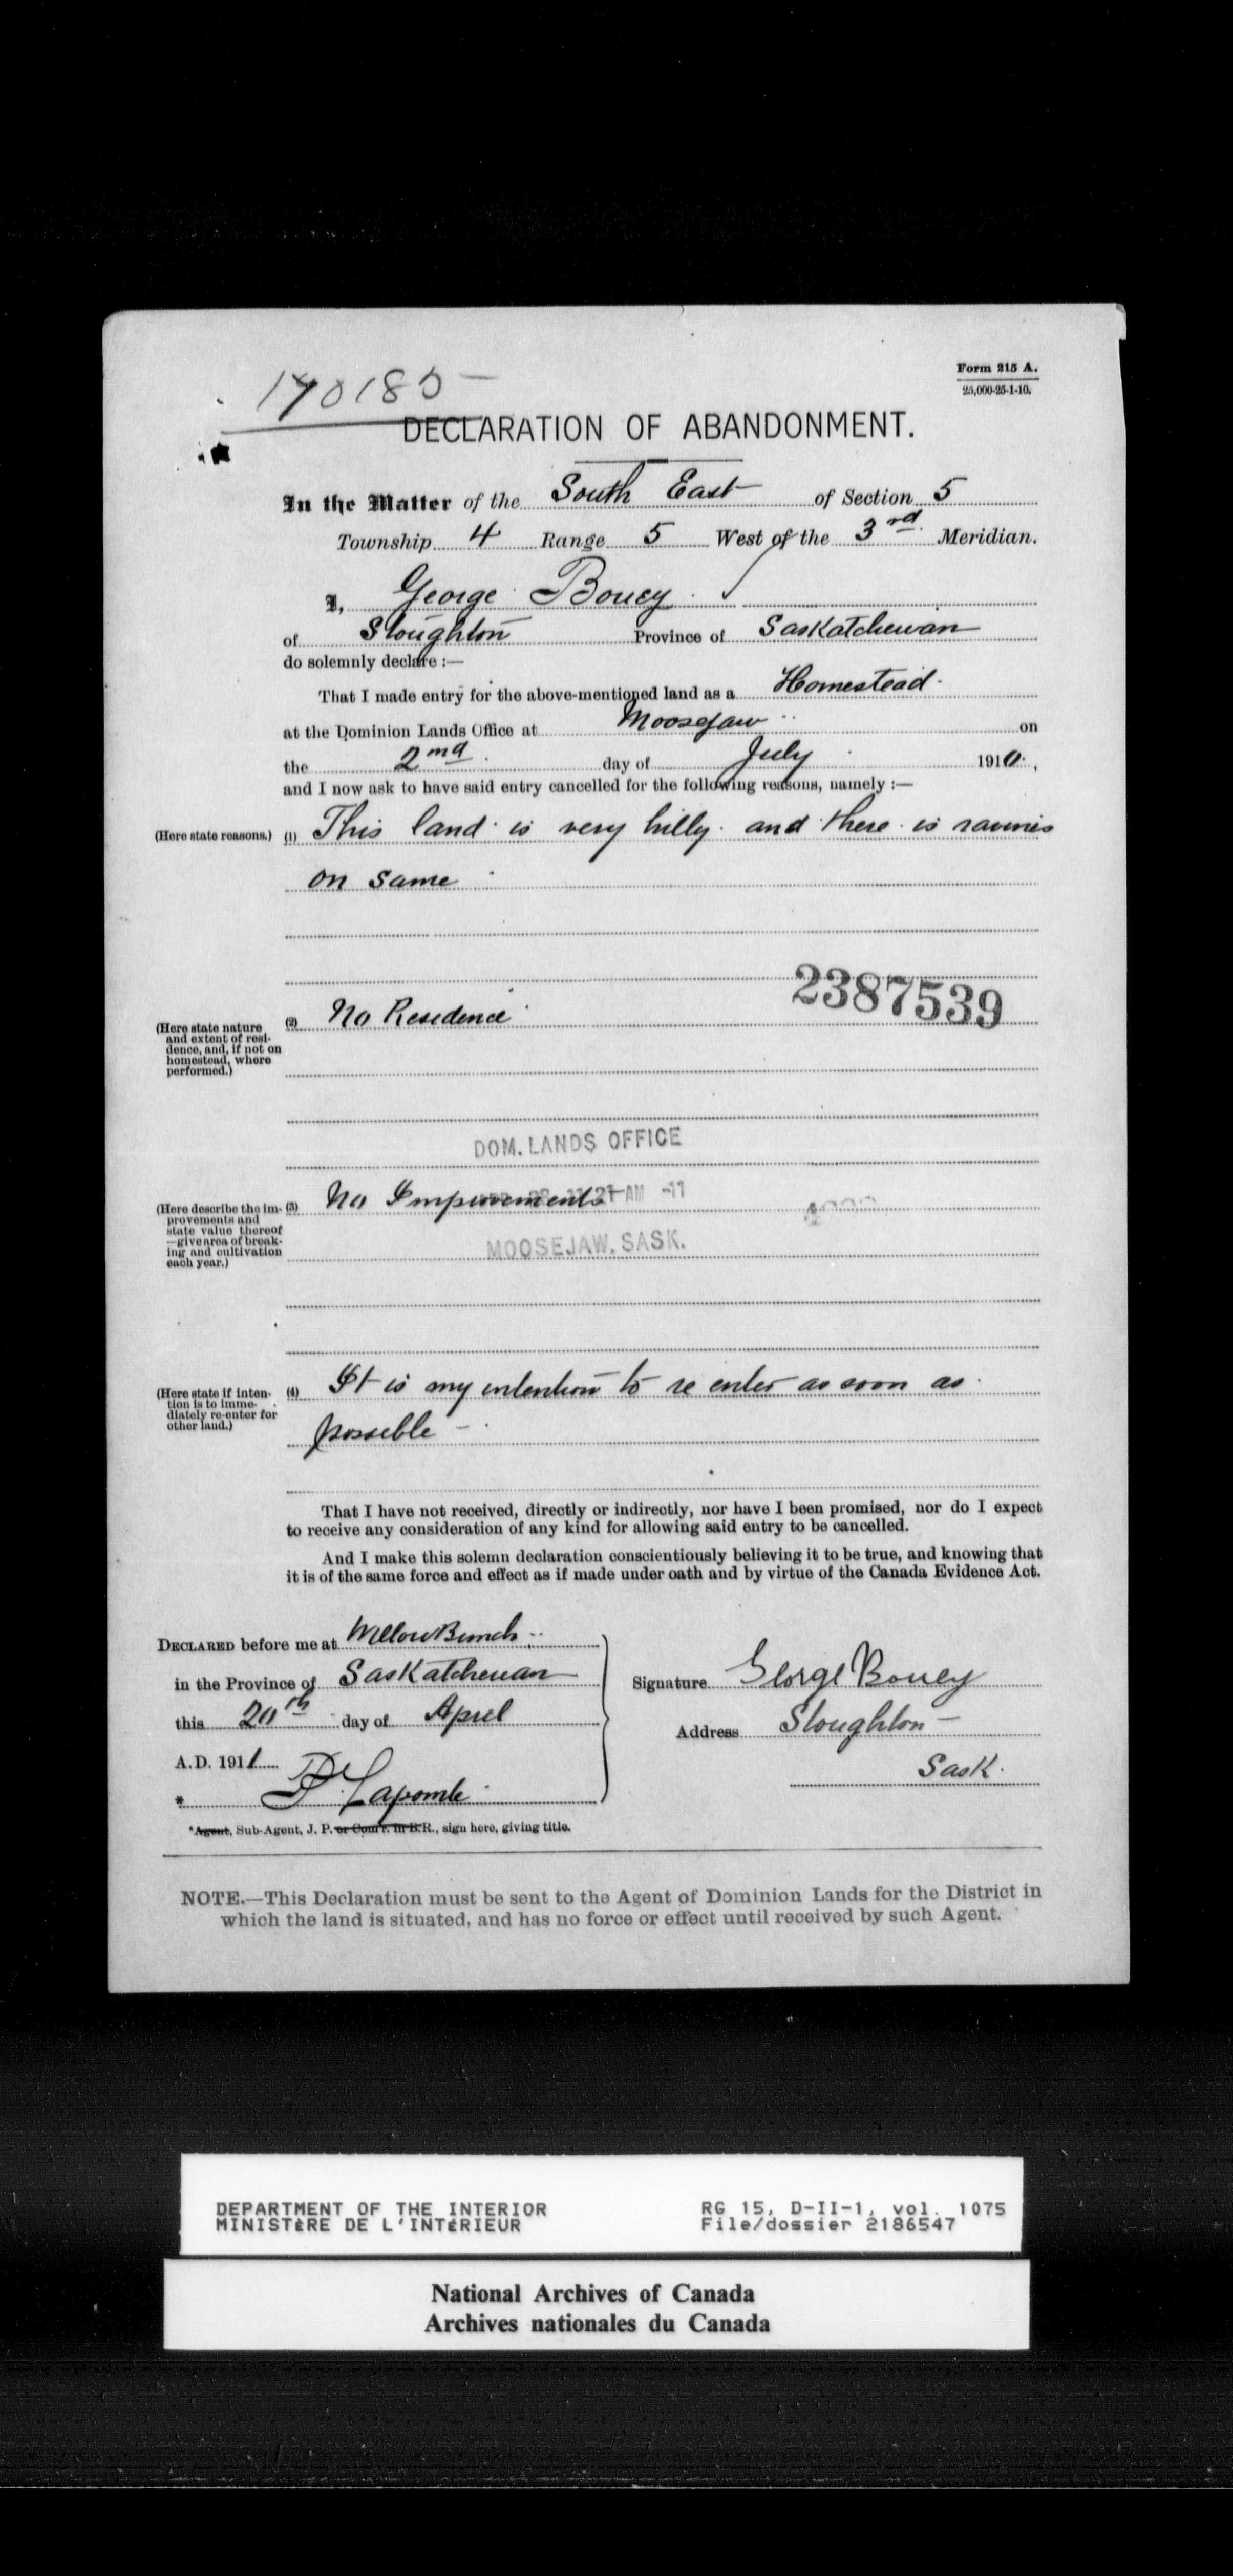 170185
Form 215 A.
25,000-25-1-10.
DECLARATION OF ABANDONMENT.
In the Matter of the South East of Section 5
Township 4 Range 5 West of the 3rd Meridian.
I, George Boucy
of Stoughton Province of Saskatchewan
do solemnly declare :—
That I made entry for the above-mentioned land as a Homestead
at the Dominion Lands Office at Moosejaw on
the 2nd day of July 1910,
and I now ask to have said entry cancelled for the following reasons, namely :—
(Here state reasons.) (1) This land is very hilly and there is ravines
on same
2387539
(2) No Residence
(Here state nature
and extent of resi-
dence, and, if not on
homestead, where
performed.)
DOM. LANDS OFFICE
(Here describe the im- (3) No Improvements
27 AM -11
provements and
state value thereof
—give area of break-
ing and cultivation
each year.)
MOOSEJAW, SASK.
(Here state if inten- (4) It is my intention to re enter as soon as
tion is to imme-
diately re-enter for
other land.)
possible
That I have not received, directly or indirectly, nor have I been promised, nor do I expect
to receive any consideration of any kind for allowing said entry to be cancelled.
And I make this solemn declaration conscientiously believing it to be true, and knowing that
it is of the same force and effect as if made under oath and by virtue of the Canada Evidence Act.
DECLARED before me at Willow Bunch
in the Province of Saskatchewan
this 20th day of April
A.D. 1911
*
Signature George Boucy
Address Stoughton
Sask.
*Agent, Sub-Agent, J. P. or Com'r. in B.R., sign here, giving title.
NOTE.—This Declaration must be sent to the Agent of Dominion Lands for the District in
which the land is situated, and has no force or effect until received by such Agent.
DEPARTMENT OF THE INTERIOR
MINISTÈRE DE L'INTÉRIEUR
RG 15, D-II-1, vol. 1075
File/dossier 2186547
National Archives of Canada
Archives nationales du Canada